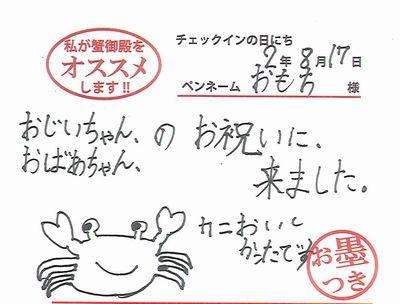 私が蟹御殿を
オススメ
します!!
チェックインの日にち
2年8月17日
ペンネーム おもち 様
おじいちゃん、
おばあちゃん、
の お祝いに、
来ました。
カニおいし
かったです
お墨
つき